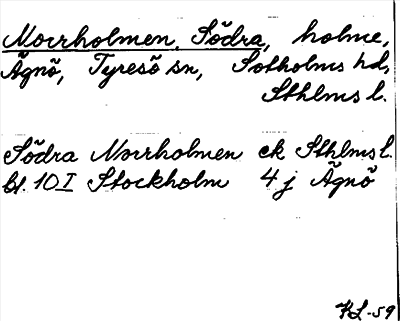 Norrholmen, Södra, holme,
Ägnö, Tyresö sn, Sotholms hd,
Sthlms l.
Södra Norrholmen ek Sthlms l.
bl. 10 I Stockholm 4 j Ägnö
HL-59